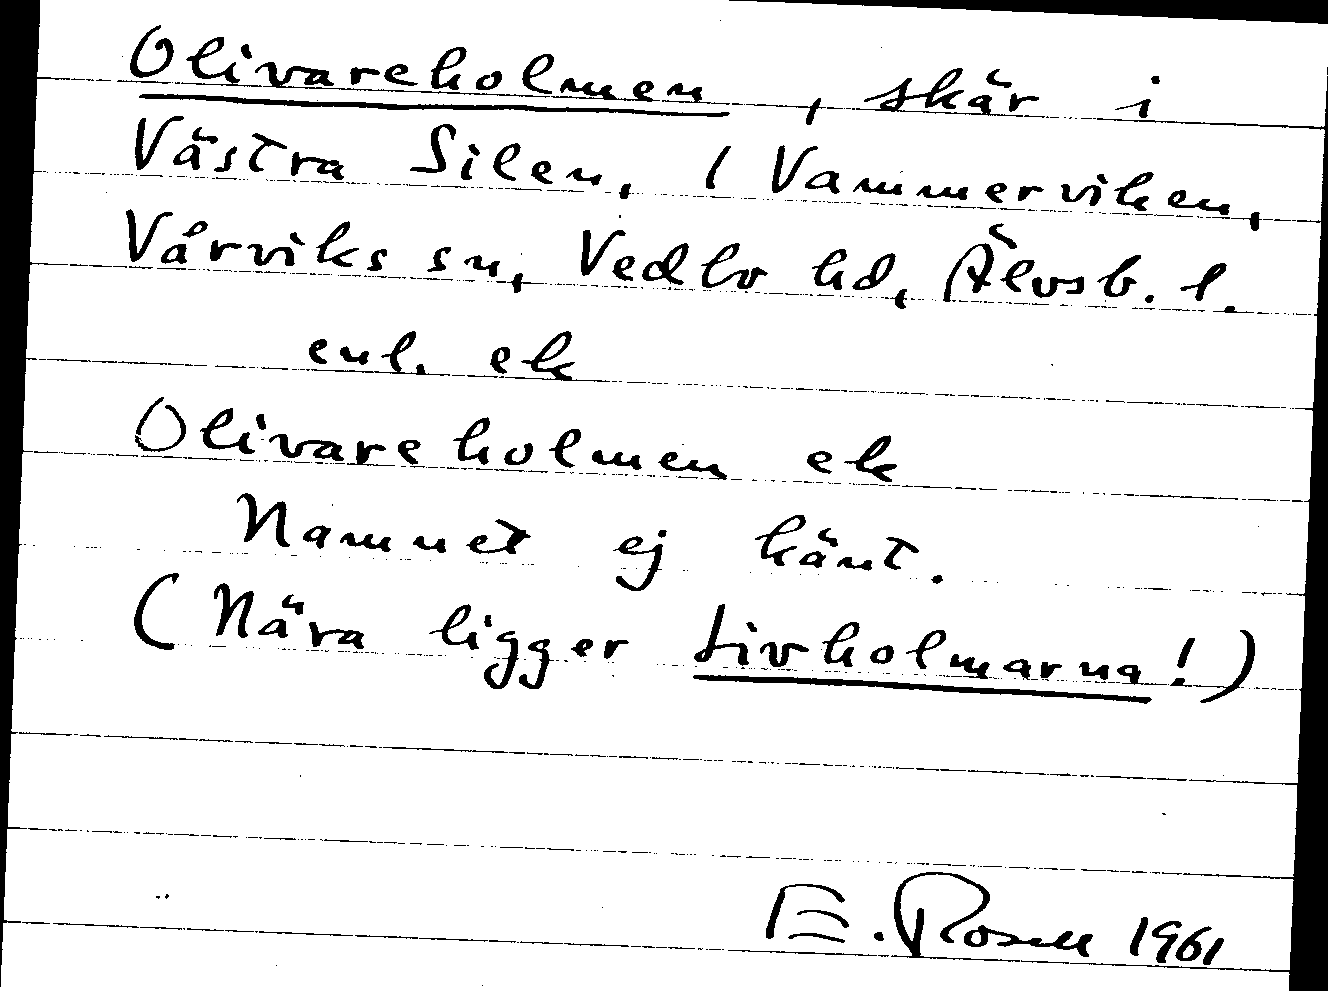 Olivareholmen, skär i
Västra Silen, / Vammerviken,
Vårviks sn, Vedbo hd, Älvsb. l.
enl. ek
Olivareholmen ek
Namnet ej känt.
(Nära ligger Livholmarna!)
E. Rosell 1961